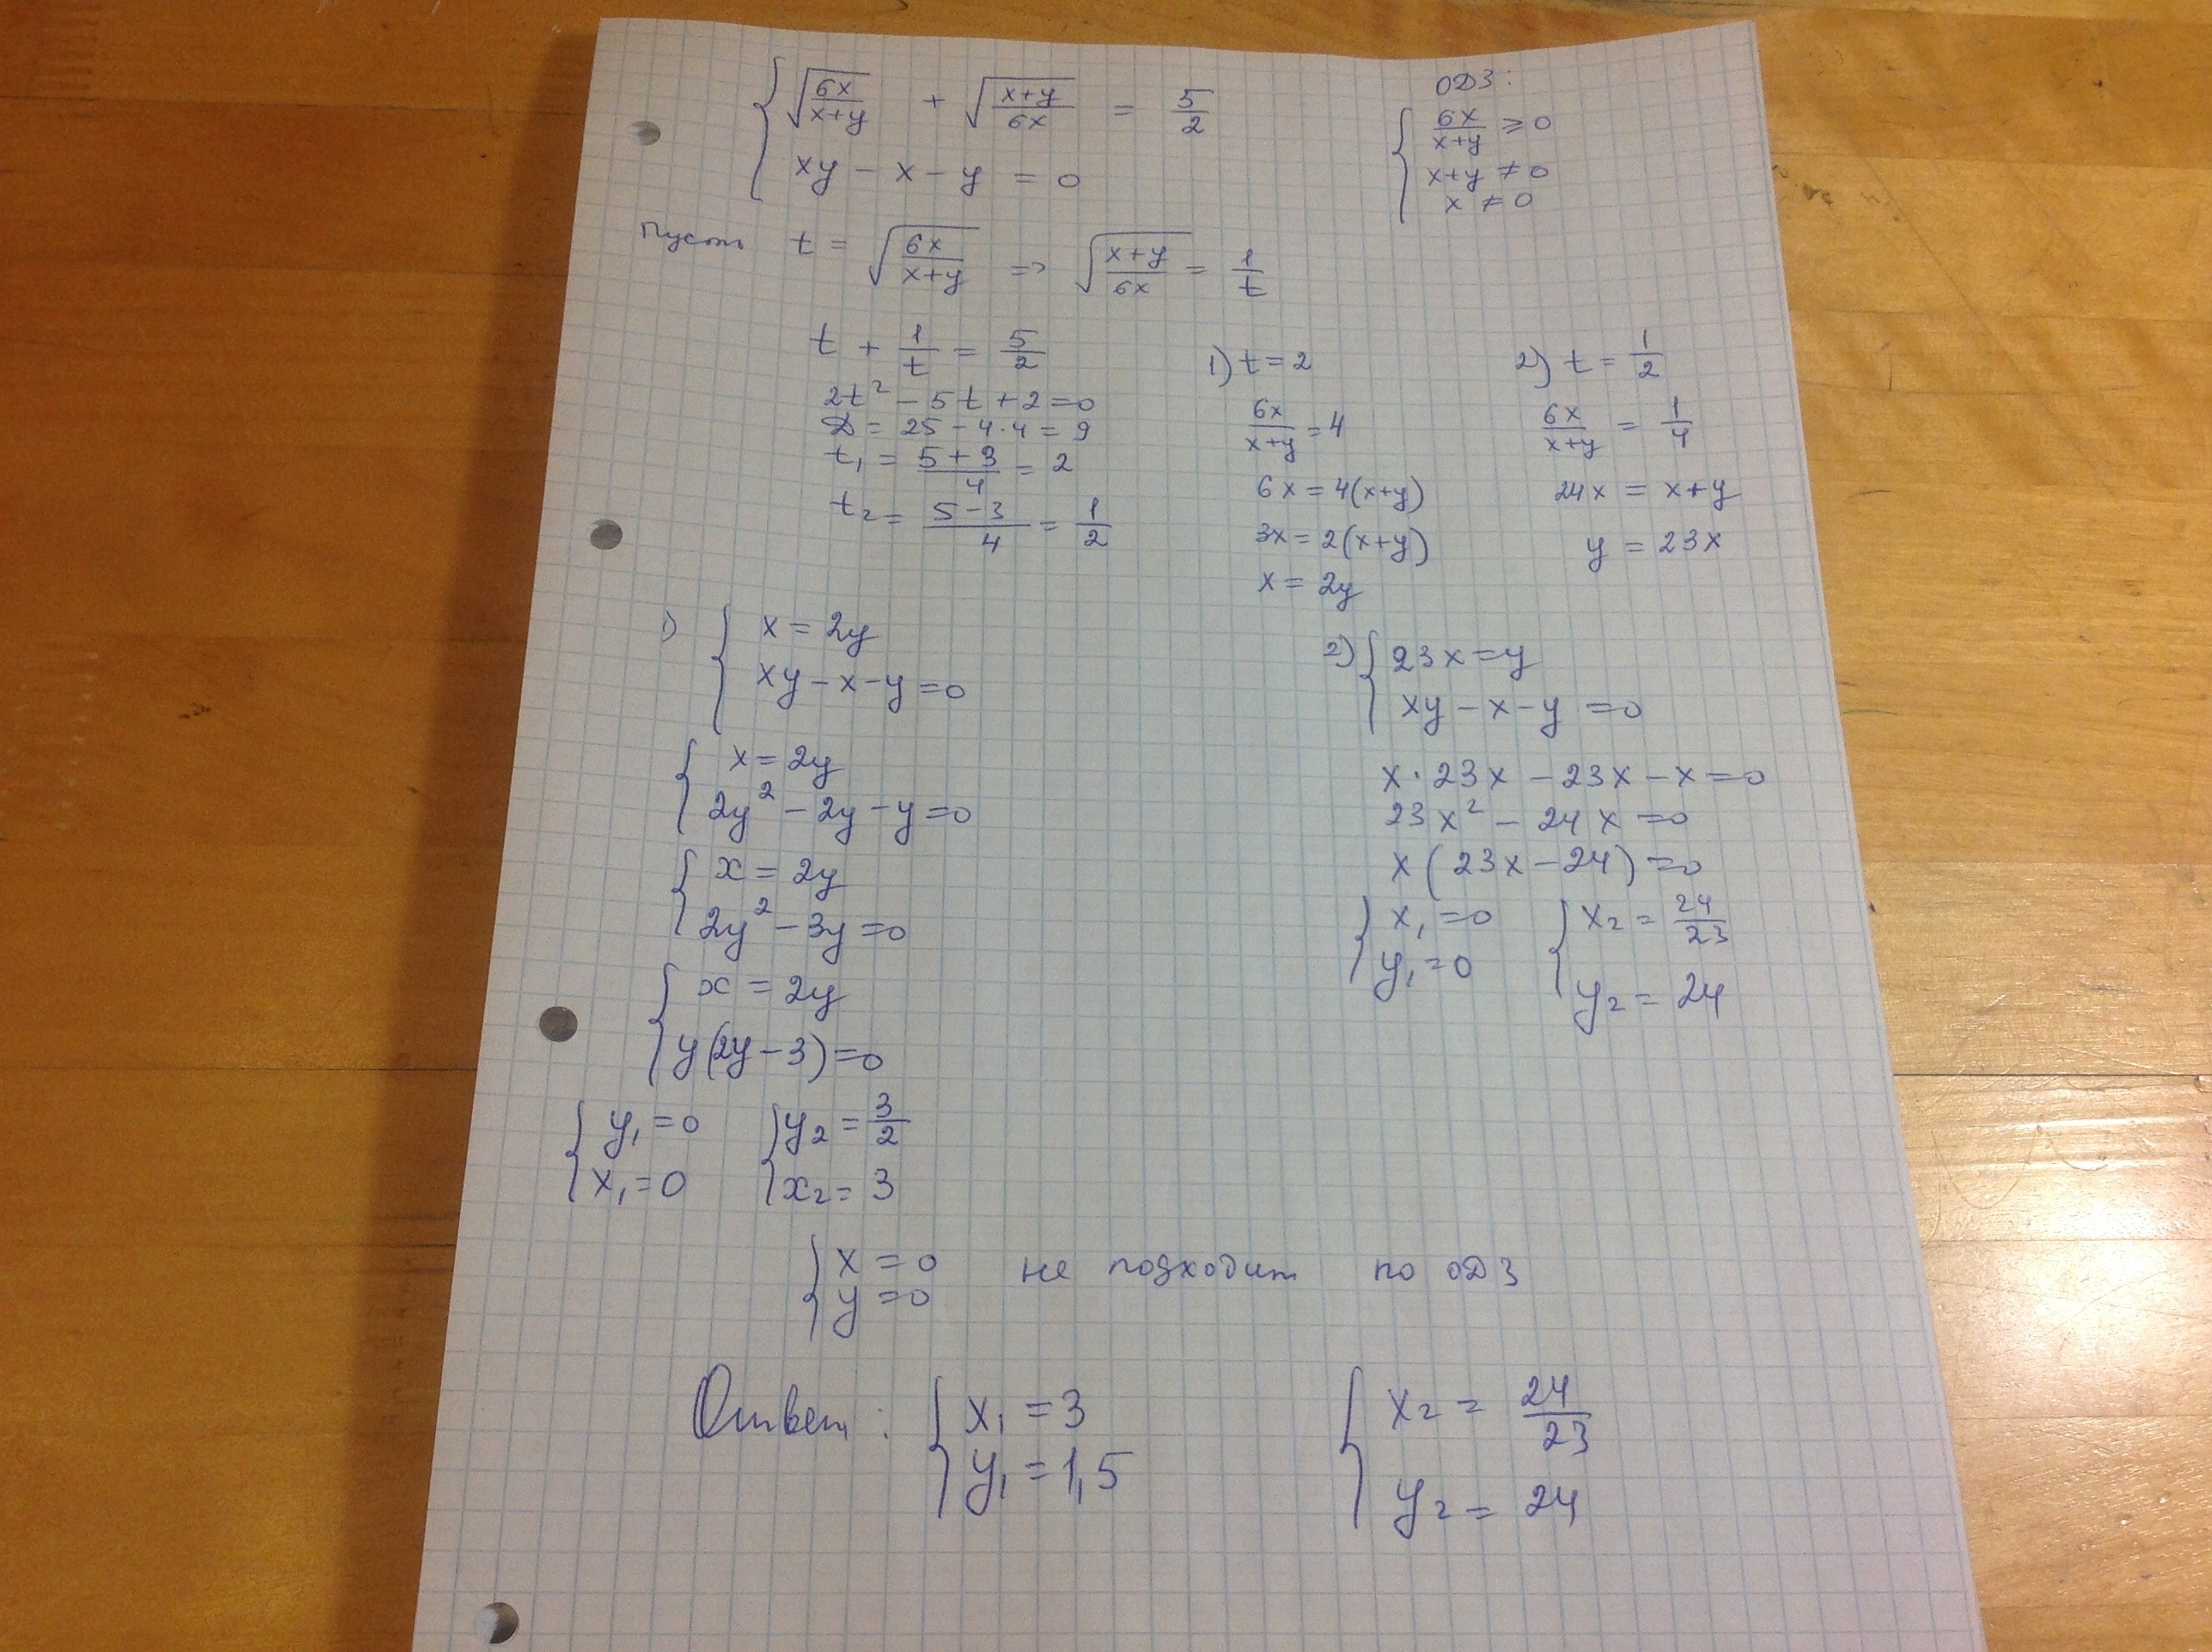 √(6x/(x+y)) + √((x+y)/(6x)) = 5/2
xy - x - y = 0
ОДЗ:
6x/(x+y) ≥ 0
x+y ≠ 0
x ≠ 0
Пусть t = √(6x/(x+y)) => √((x+y)/(6x)) = 1/t
t + 1/t = 5/2
2t² - 5t + 2 = 0
D = 25 - 4·4 = 9
t₁ = (5+3)/4 = 2
t₂ = (5-3)/4 = 1/2
1) t = 2
6x/(x+y) = 4
6x = 4(x+y)
3x = 2(x+y)
x = 2y
2) t = 1/2
6x/(x+y) = 1/4
24x = x+y
y = 23x
1) { x = 2y
xy - x - y = 0
{ x = 2y
2y² - 2y - y = 0
{ x = 2y
2y² - 3y = 0
{ x = 2y
y(2y - 3) = 0
{ y₁ = 0 { y₂ = 3/2
x₁ = 0 x₂ = 3
2) { 23x = y
xy - x - y = 0
x·23x - 23x - x = 0
23x² - 24x = 0
x(23x - 24) = 0
{ x₁ = 0 { x₂ = 24/23
y₁ = 0 y₂ = 24
{ x = 0 не подходит по ОДЗ
y = 0
Ответ: { x₁ = 3 { x₂ = 24/23
y₁ = 1,5 y₂ = 24